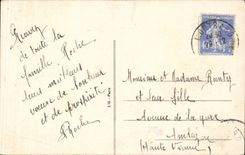 Recevez
de toute la
famille Roche
leurs meilleurs
voeux de bonheur
et de prospérité
Roche
Monsieur et Madame
et leur fille
Avenue de la gare
(Haute Vienne)